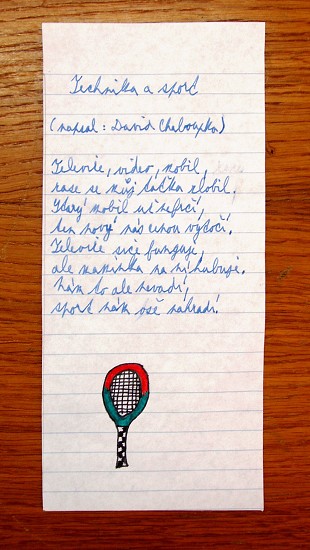 Technika a sport
(napsal: David Chaloupka)
Televize, video, mobil,
zase se můj taťka zlobil.
Starý mobil už nefrčí,
ten nový nás vytočí.
Televize sice funguje,
ale maminka na ni hubuje.
Nám to ale nevadí,
sport nám vše nahradí.